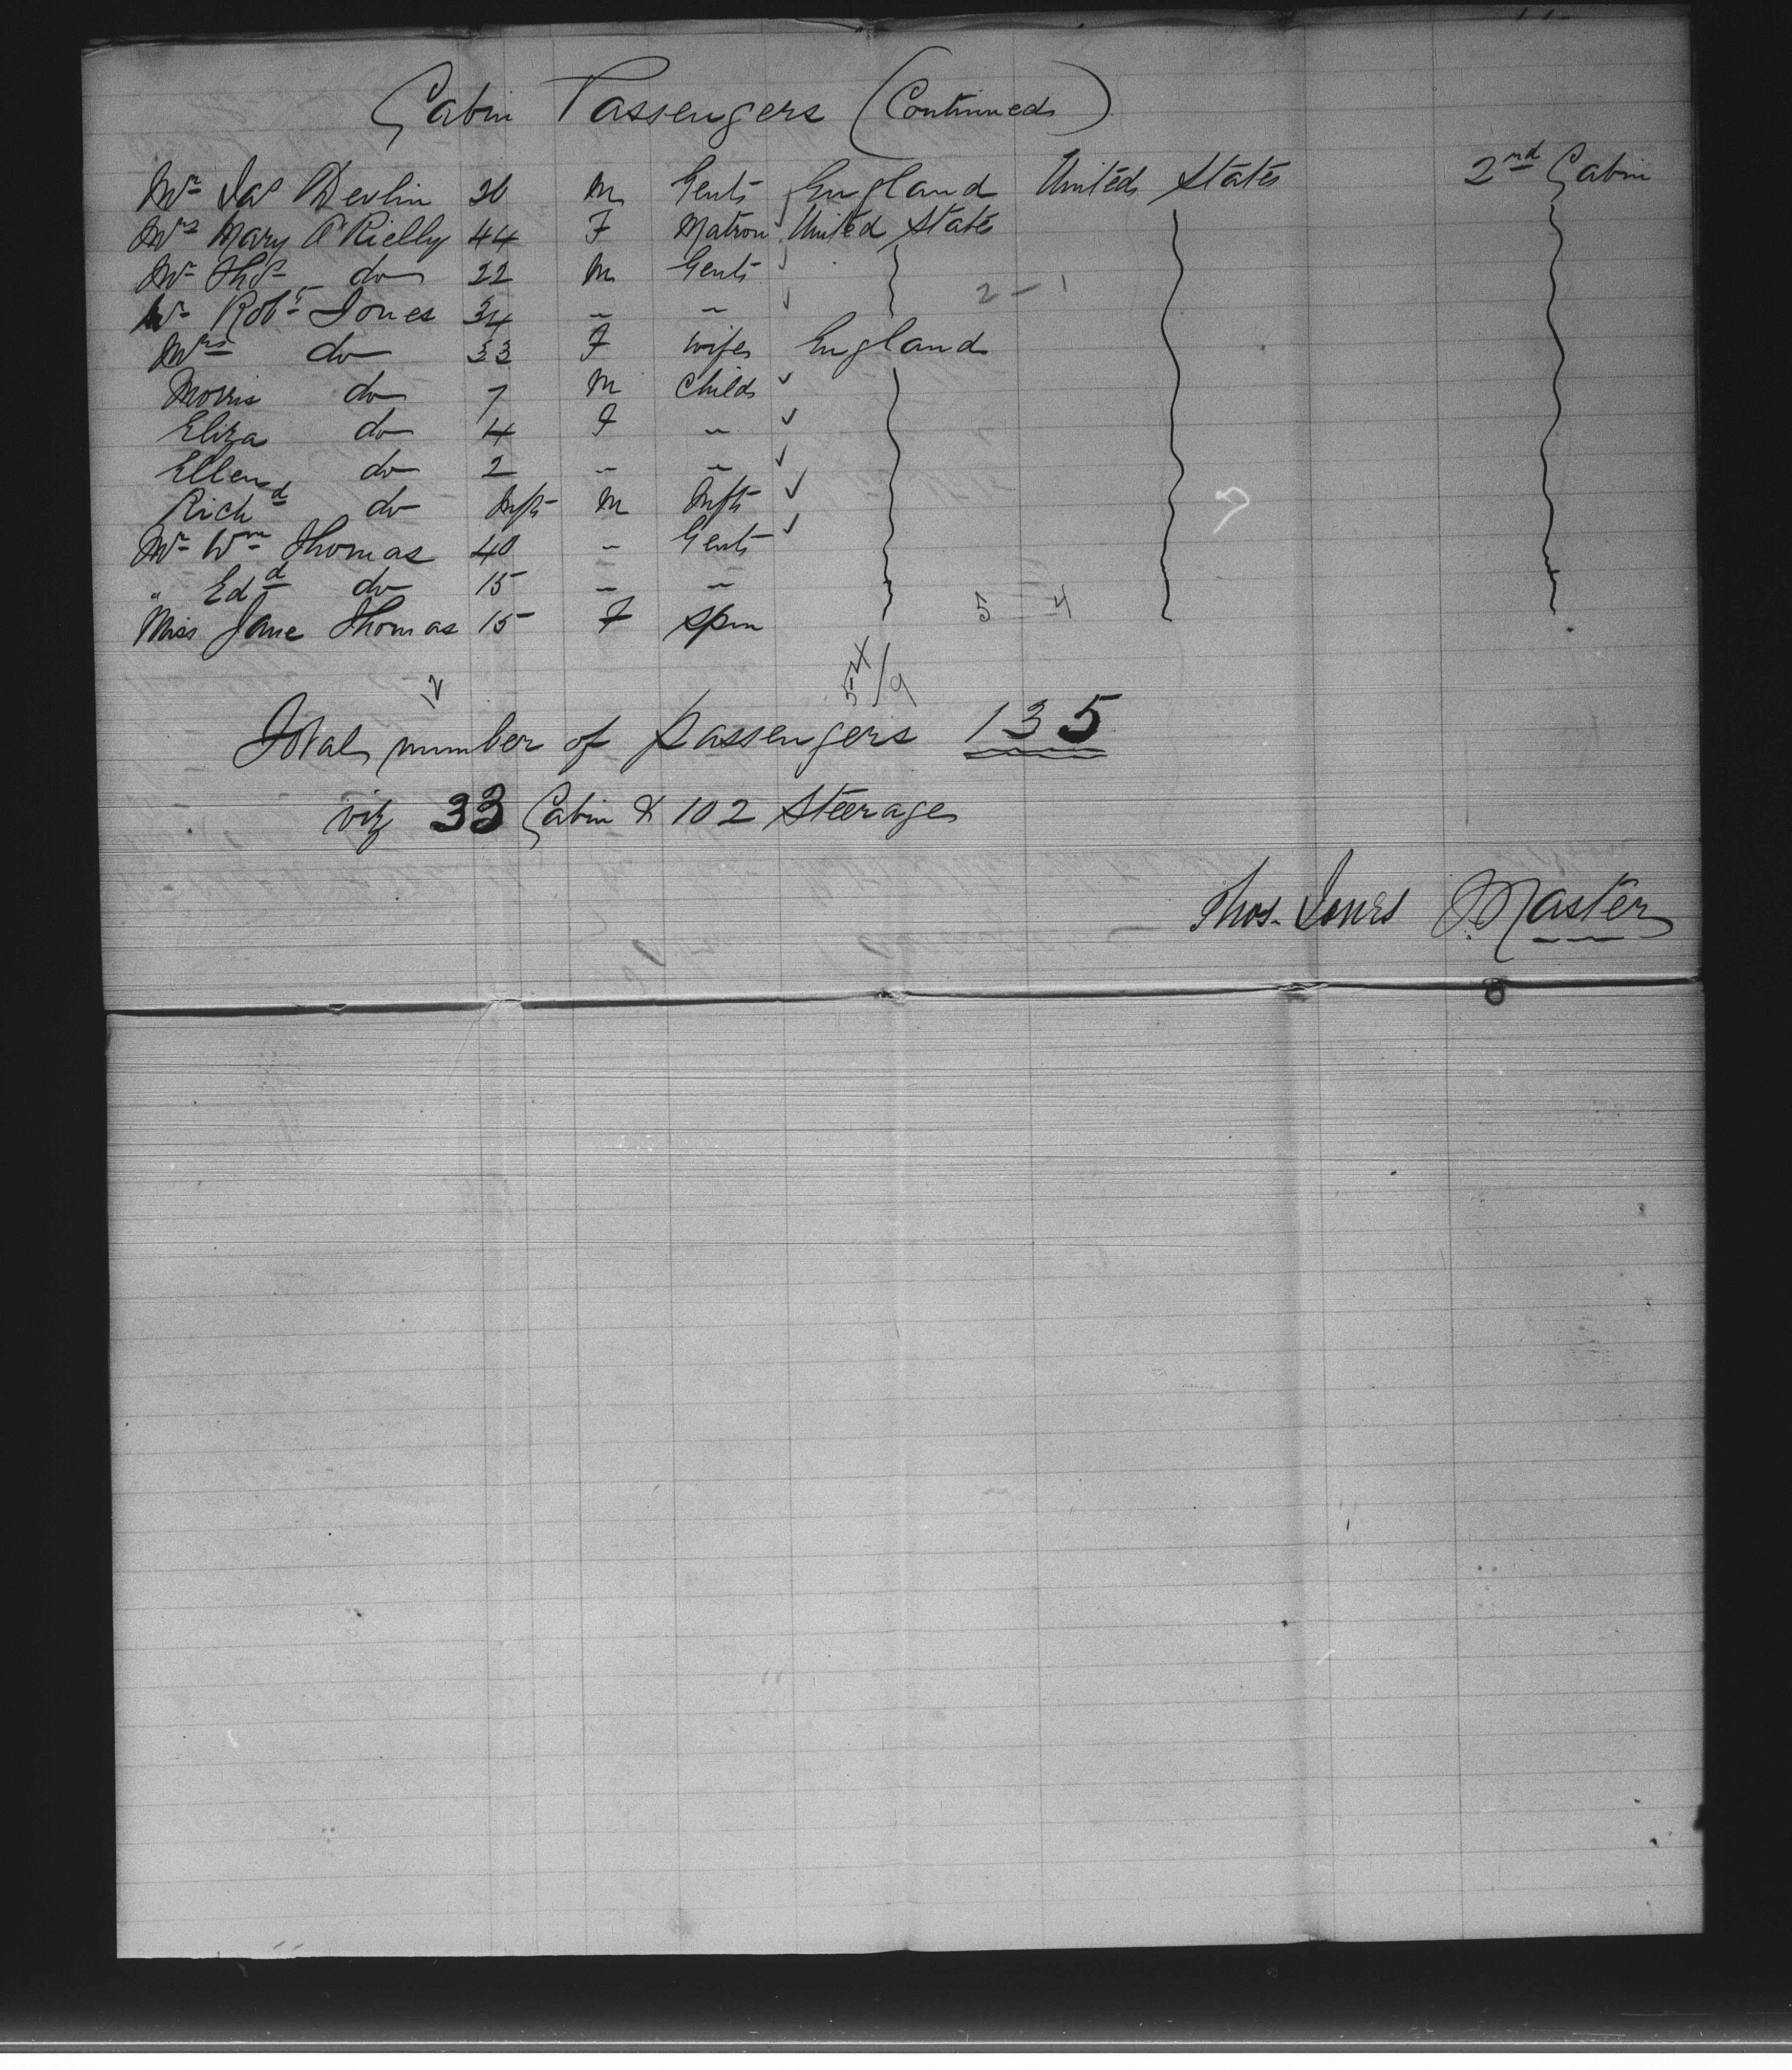 Cabin Passengers (Continued)
Mr Jas Devlin 26 M Gent England United States 2nd Cabin
Mrs Mary O'Rielly 44 F Matron United States
Mr Thos do 22 M Gent
Mr Robt Jones 34 " " 2 - 1
Mrs do 33 F Wife England
Morris do 7 M Child
Eliza do 4 F "
Ellen do 2 " "
Richd do Inft M Inft
Mr Wm Thomas 40 " Gent
" Edd do 15 " "
Miss Jane Thomas 15 F Spin 5 - 4
12
Total number of passengers 135
viz 33 Cabin & 102 Steerage
Thos. Jones Master